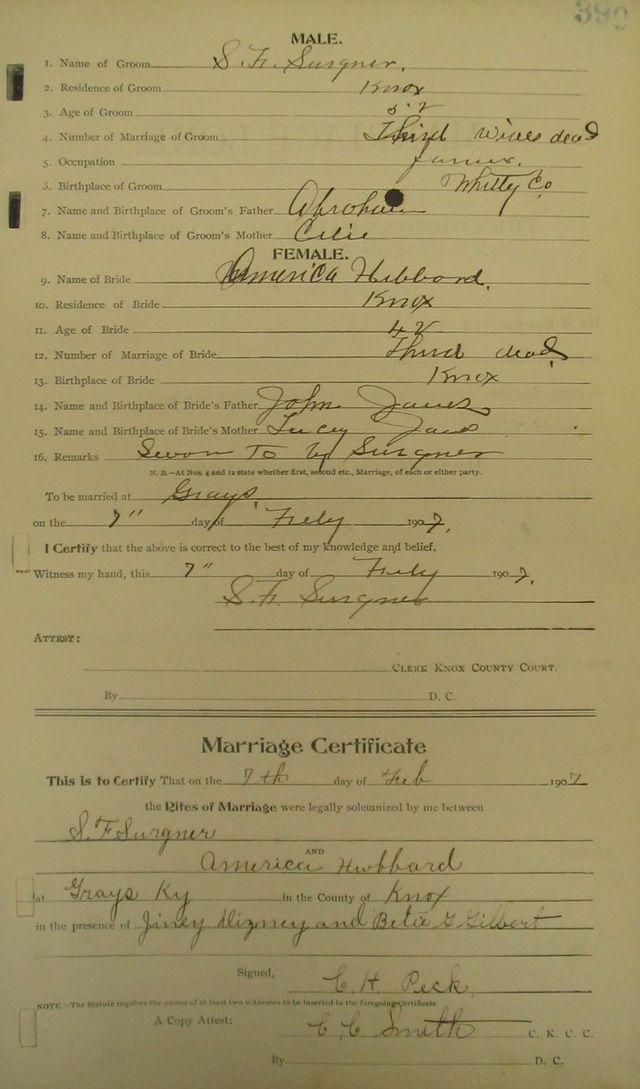 390
MALE.
1. Name of Groom S. F. Surgner.
2. Residence of Groom Knox
3. Age of Groom 52
4. Number of Marriage of Groom Third wives dead
5. Occupation farmer.
6. Birthplace of Groom Whitly Co
7. Name and Birthplace of Groom's Father Abraham
8. Name and Birthplace of Groom's Mother Celie
FEMALE.
9. Name of Bride America Hibbard.
10. Residence of Bride Knox
11. Age of Bride 42
12. Number of Marriage of Bride Third dead
13. Birthplace of Bride Knox
14. Name and Birthplace of Bride's Father John
15. Name and Birthplace of Bride's Mother Lucy
16. Remarks Sworn To by Surgner
N. B.—At Nos. 4 and 12 state whether first, second etc., Marriage, of each or either party.
To be married at Grays,
on the 7" day of Feby 1907.
I Certify that the above is correct to the best of my knowledge and belief.
Witness my hand, this 7" day of Feby 1907.
S. F. Surgner
ATTEST:
CLERK KNOX COUNTY COURT.
By D. C.
Marriage Certificate
This is to Certify That on the 7th day of Feb 1907
the Rites of Marriage were legally solemnized by me between
S. F Surgner
AND
America Hubbard
at Grays Ky in the County of Knox
in the presence of and G Gilbert
Signed, C. H. Peck
NOTE.—The Statute requires the names of at least two witnesses to be inserted in the foregoing Certificate
A Copy Attest: C. C. Smith C. K. C. C.
By D. C.